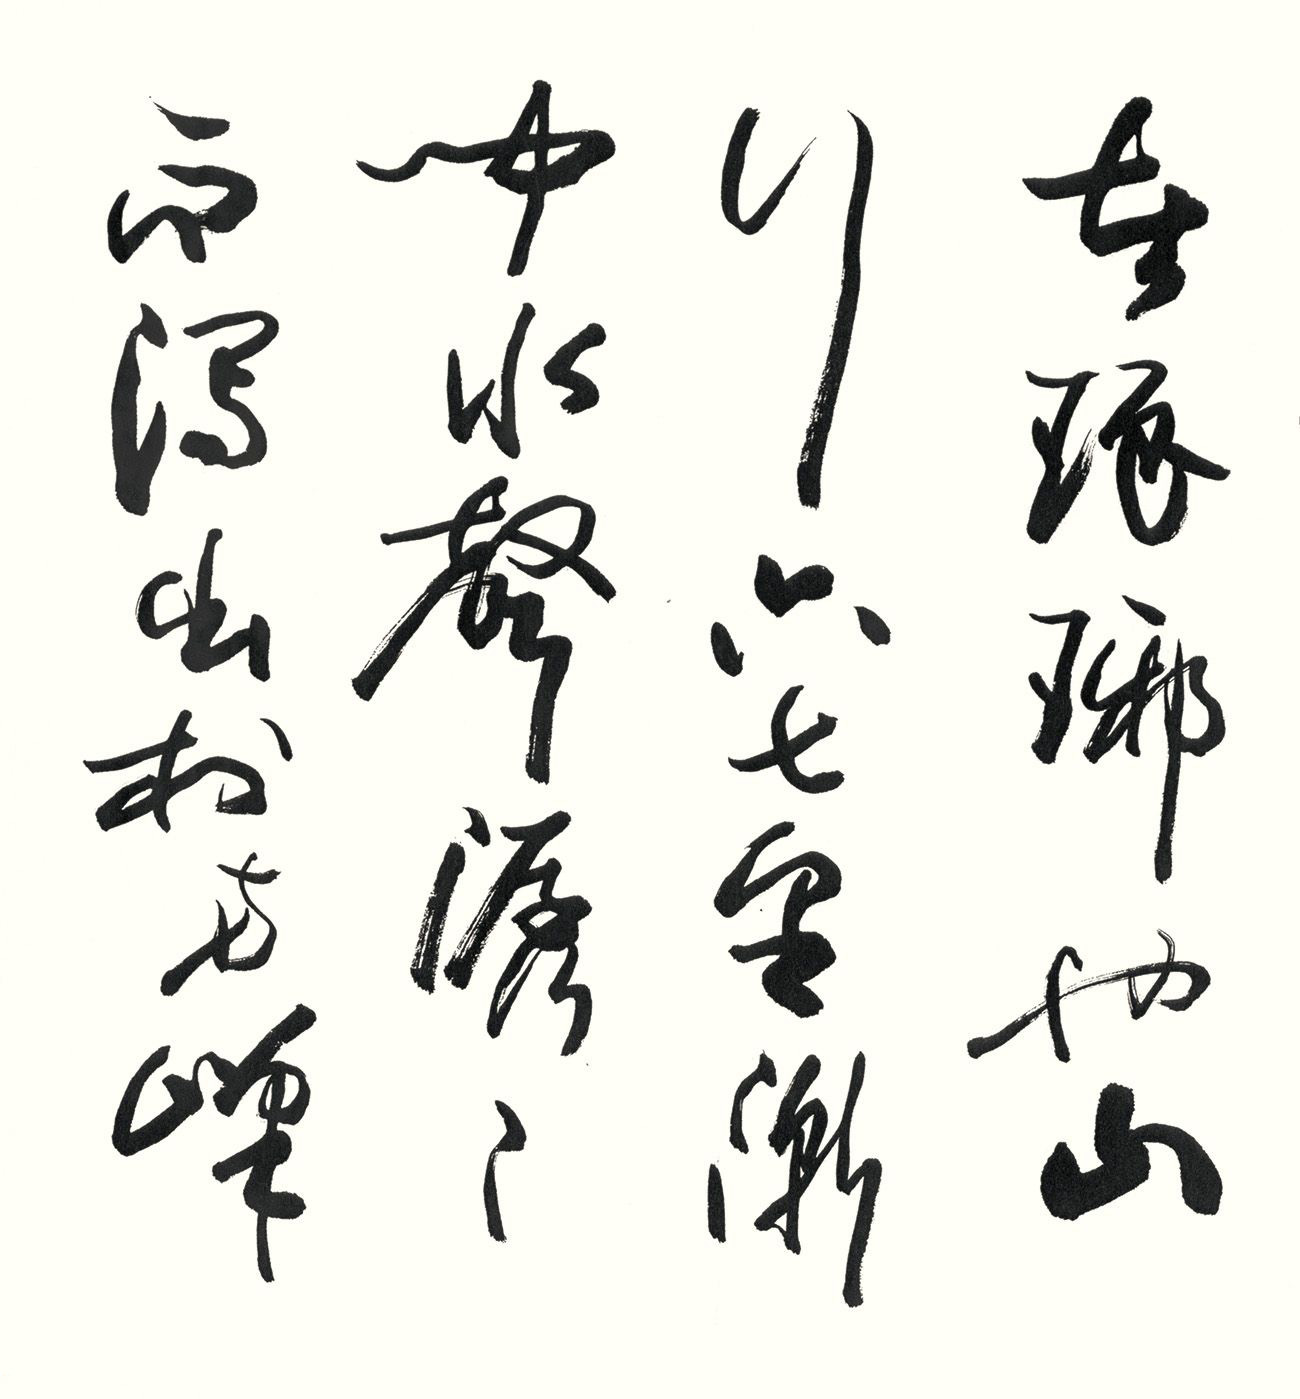 者琅琊也山
行六七里漸
聞水聲潺〻
而瀉出於兩峰